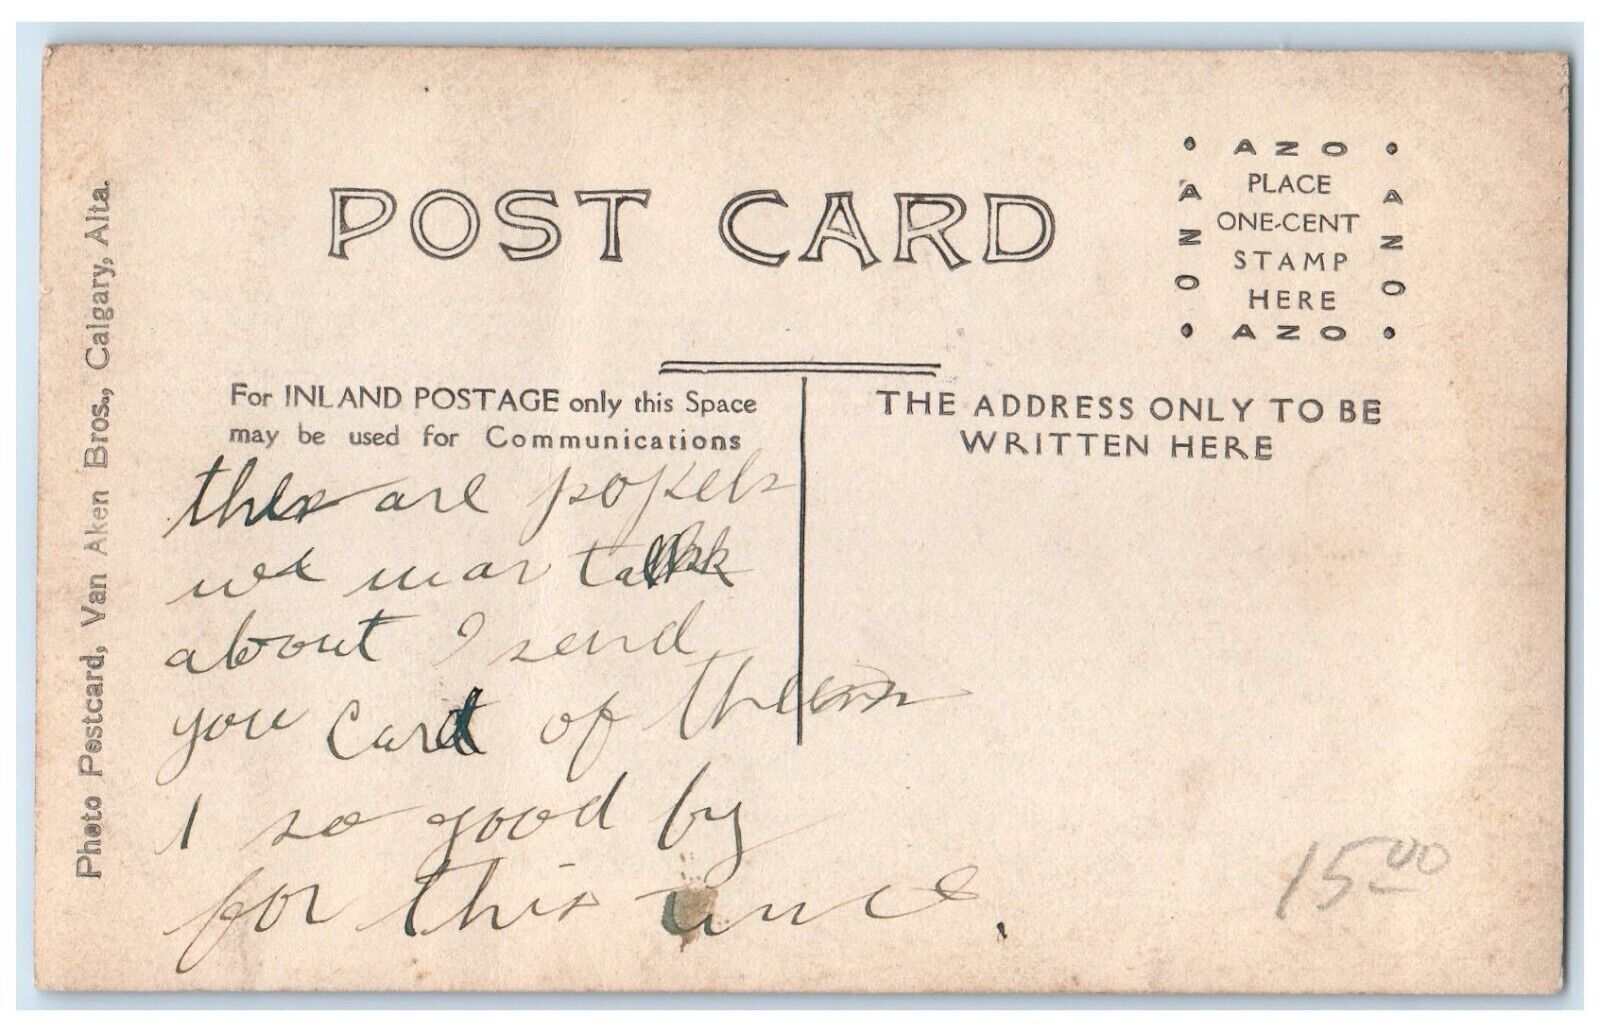 POST CARD
AZO
AZO
PLACE
ONE-CENT
STAMP
HERE
AZO
AZO
Photo Postcard, Van Aken Bros., Calgary, Alta.
For INLAND POSTAGE only this Space
may be used for Communications
THE ADDRESS ONLY TO BE
WRITTEN HERE
are
talk
about I send
you Card of them
I so good by
for this unce.
15.00